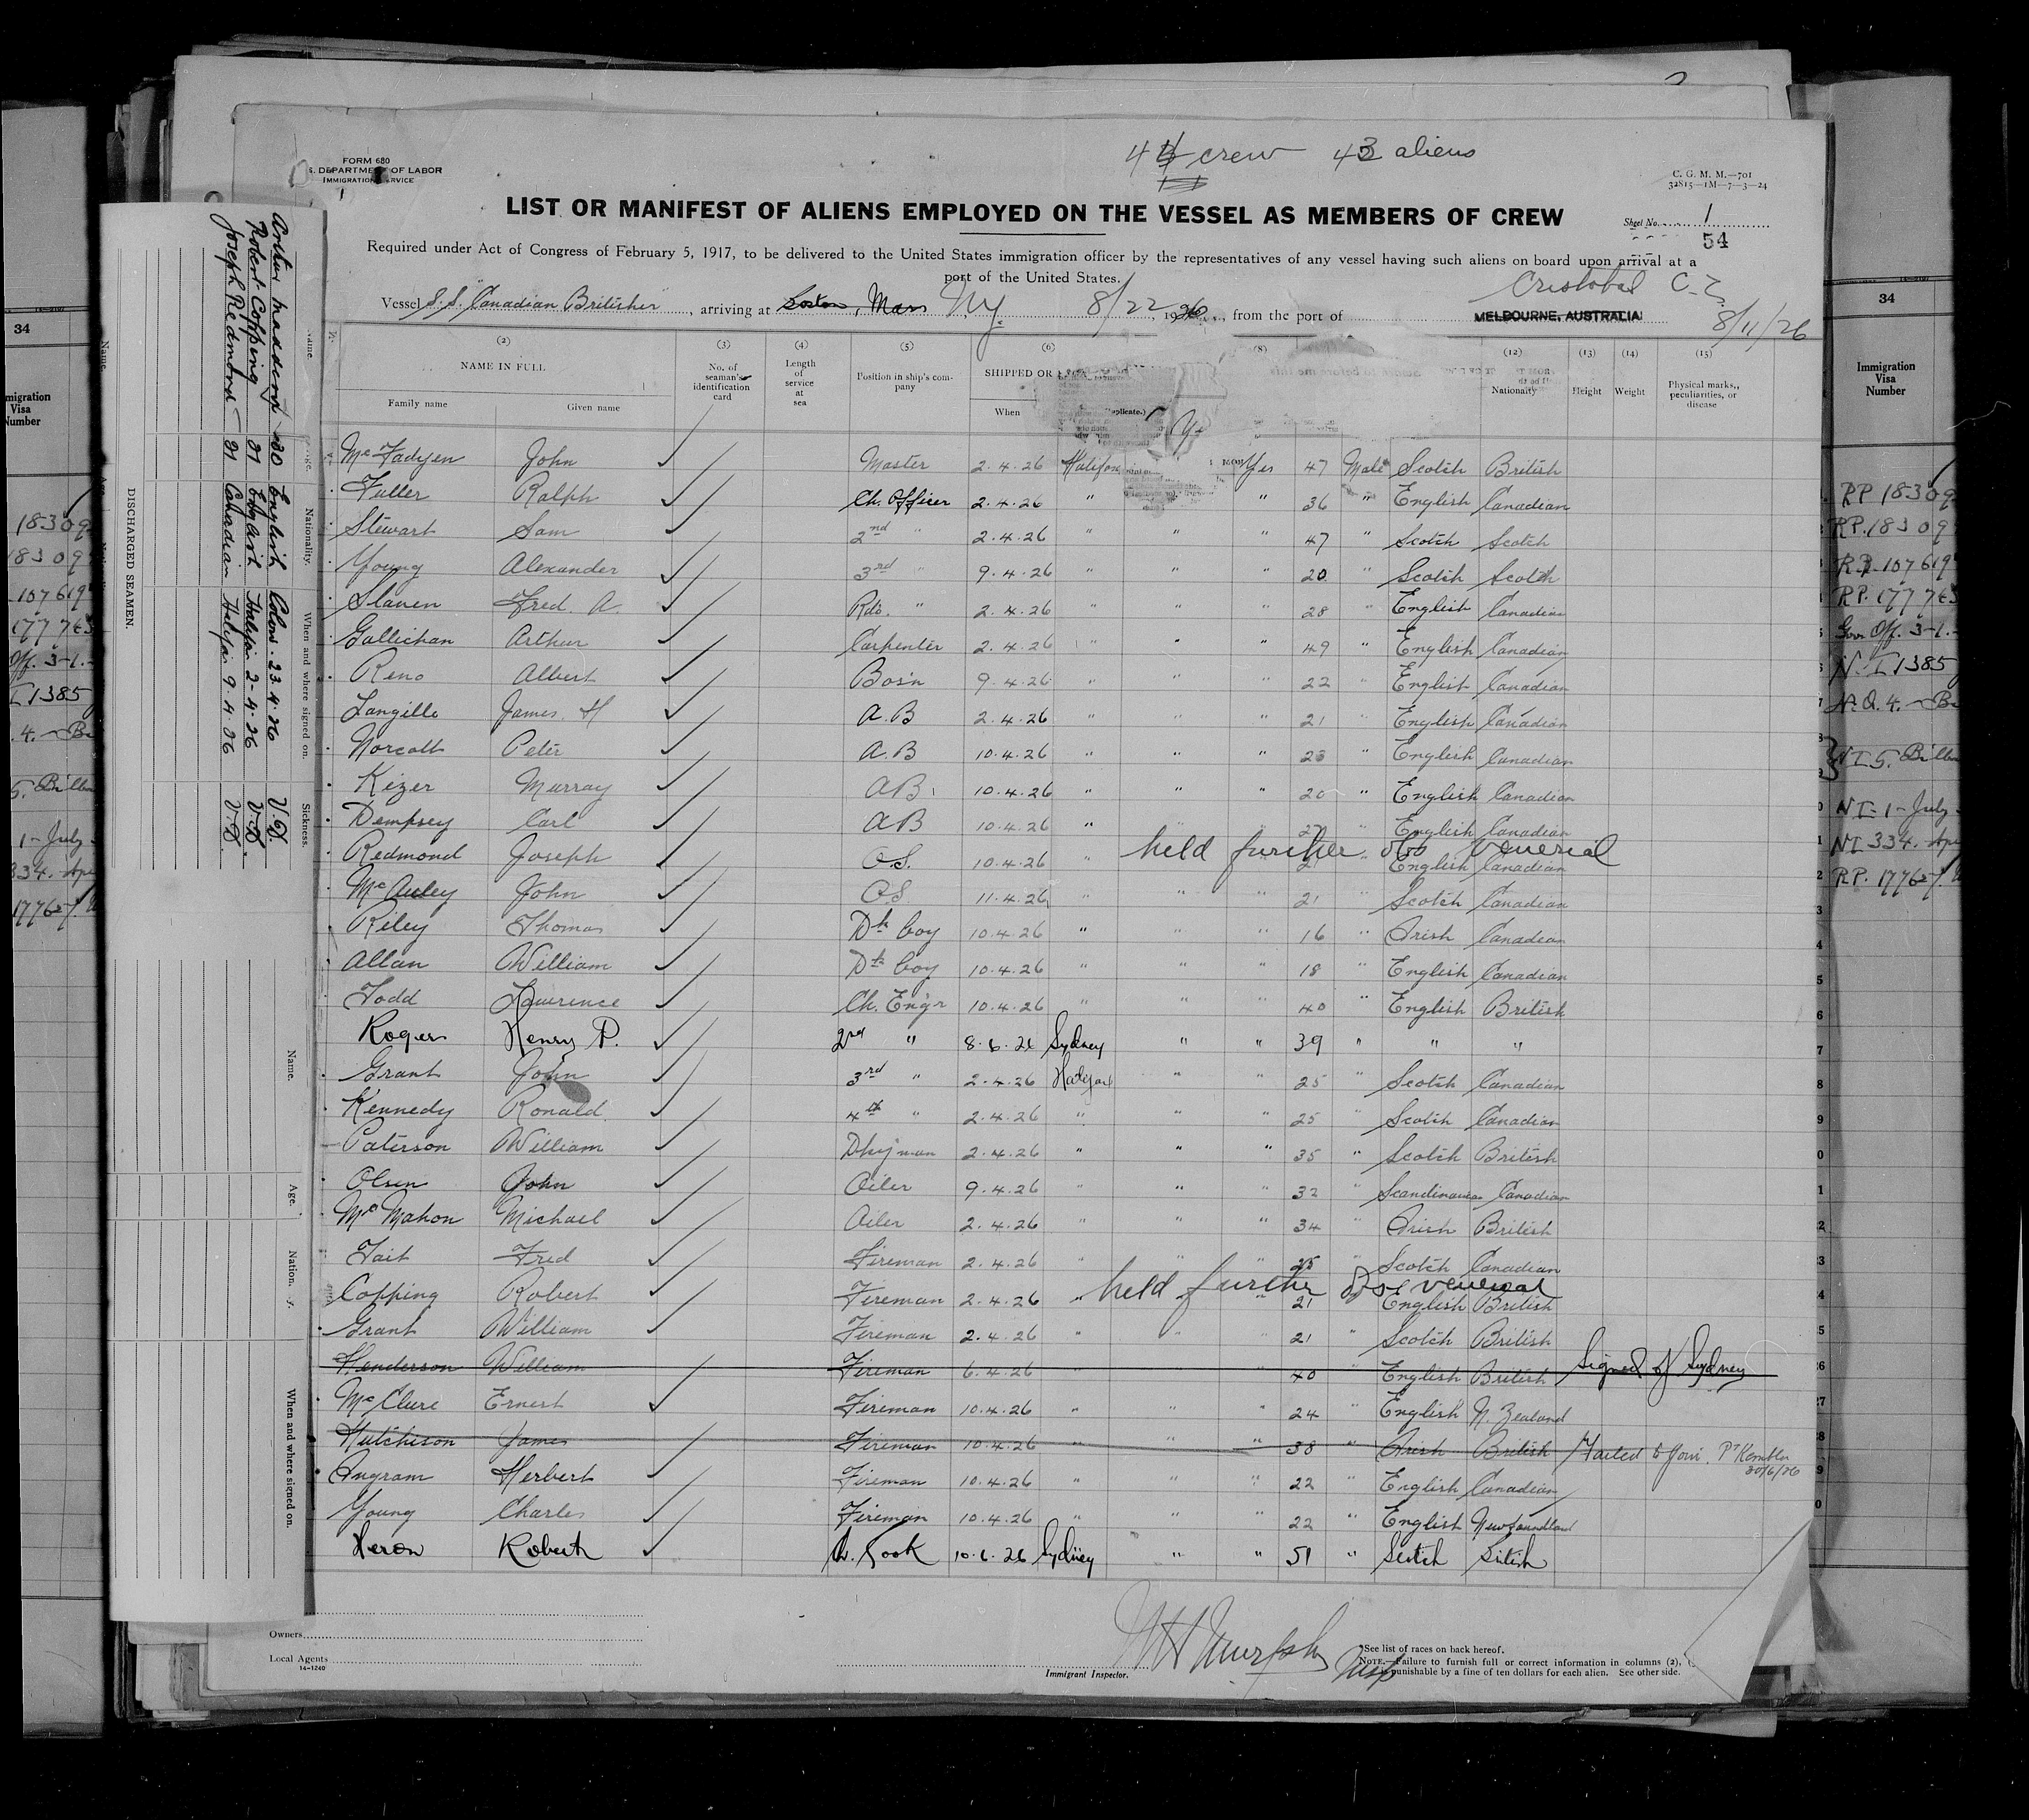 44 crew 43 aliens
FORM 680
S. DEPARTMENT OF LABOR
IMMIGRATION SERVICE
C. G. M. M.—701
32815—1M—7—3—24
LIST OR MANIFEST OF ALIENS EMPLOYED ON THE VESSEL AS MEMBERS OF CREW
Sheet No. 1
54
Required under Act of Congress of February 5, 1917, to be delivered to the United States immigration officer by the representatives of any vessel having such aliens on board upon arrival at a
port of the United States.
Cristobal C.Z.
Vessel S.S. "Canadian Britisher", arriving at Boston, Mass NY. 8/22, 1926, from the port of MELBOURNE, AUSTRALIA 8/11/26
(2) (3) (4) (5) (6) (8) (12) (13) (14) (15)
NAME IN FULL No. of seaman's identification card Length of service at sea Position in ship's company SHIPPED OR Nationality Height Weight Physical marks, peculiarities, or disease
Family name Given name When
McFadyen John Master 2.4.26 Halifax Yes 47 Male Scotch British
Fuller Ralph Ch. Officer 2.4.26 " " 36 " English Canadian
Stewart Sam 2nd " 2.4.26 " " " 47 " Scotch Scotch
Young Alexander 3rd " 9.4.26 " " " 20 " Scotch Scotch
Slaven Fred. A. Rdo. " 2.4.26 " " " 28 " English Canadian
Gallichan Arthur Carpenter 2.4.26 " " " 49 " English Canadian
Reno Albert Bos'n 9.4.26 " " " 22 " English Canadian
Langille James. H A.B 2.4.26 " " " 21 " English Canadian
Norcott Peter A.B 10.4.26 " " " 23 " English Canadian
Kizer Murray A.B. 10.4.26 " " " 20 " English Canadian
Dempsey Carl A.B 10.4.26 " English Canadian
Redmond Joseph O.S. 10.4.26 " held further venereal 21 English Canadian
McAuley John O.S 11.4.26 " " " 21 " Scotch Canadian
Riley Thomas Dk boy 10.4.26 " " " 16 " Irish Canadian
Allan William Dk boy 10.4.26 " " " 18 " English Canadian
Todd Lawrence Ch. Eng'r 10.4.26 " " " 40 " English British
Roger Henry P. 2nd " 8.6.26 Sydney " " 39 " " "
Grant John 3rd " 2.4.26 Halifax " " 25 " Scotch Canadian
Kennedy Ronald 4th " 2.4.26 " " " 25 " Scotch Canadian
Paterson William Dkyman 2.4.26 " " " 35 " Scotch British
Olsen John Oiler 9.4.26 " " " 32 " Scandinavian Canadian
McMahon Michael Oiler 2.4.26 " " " 34 " Irish British
Tait Fred Fireman 2.4.26 " " " 25 " Scotch Canadian
Copping Robert Fireman 2.4.26 " held further venereal 21 English British
Grant William Fireman 2.4.26 " " " 21 " Scotch British
Henderson William Fireman 6.4.26 " " " 40 " English British Signed off Sydney
McClure Ernest Fireman 10.4.26 " " " 24 " English N. Zealand
Hutchison James Fireman 10.4.26 " " " 38 " Irish British Failed to join Pt Kembla
30/6/26
Ingram Herbert Fireman 10.4.26 " " " 22 " English Canadian
Young Charles Fireman 10.4.26 " " " 22 " English Newfoundland
Heron Robert Ch. Cook 10.6.26 Sydney " " 51 " Scotch British
Owners
Local Agents
14-1240
Immigrant Inspector.
*See list of races on back hereof.
NOTE.—Failure to furnish full or correct information in columns (2),
punishable by a fine of ten dollars for each alien. See other side.
DISCHARGED SEAMEN.
Name. Age. Nationality. When and where signed on. Sickness.
Arthur 30 English Colon. 23.4.26 V.D.
Robert Copping 21 English Halifax 2-4-26 V.D.
Joseph Redmond 21 Canadian Halifax 9.4.26 V.D.
Name. Age. When and where signed on.
34
Immigration
Visa
Number
RP 18309
RP. 18309
RP. 107619
RP. 17776
Gov Off. 3-1.
N.I 1385
NI 334. Ap
34
migration
Visa
Number